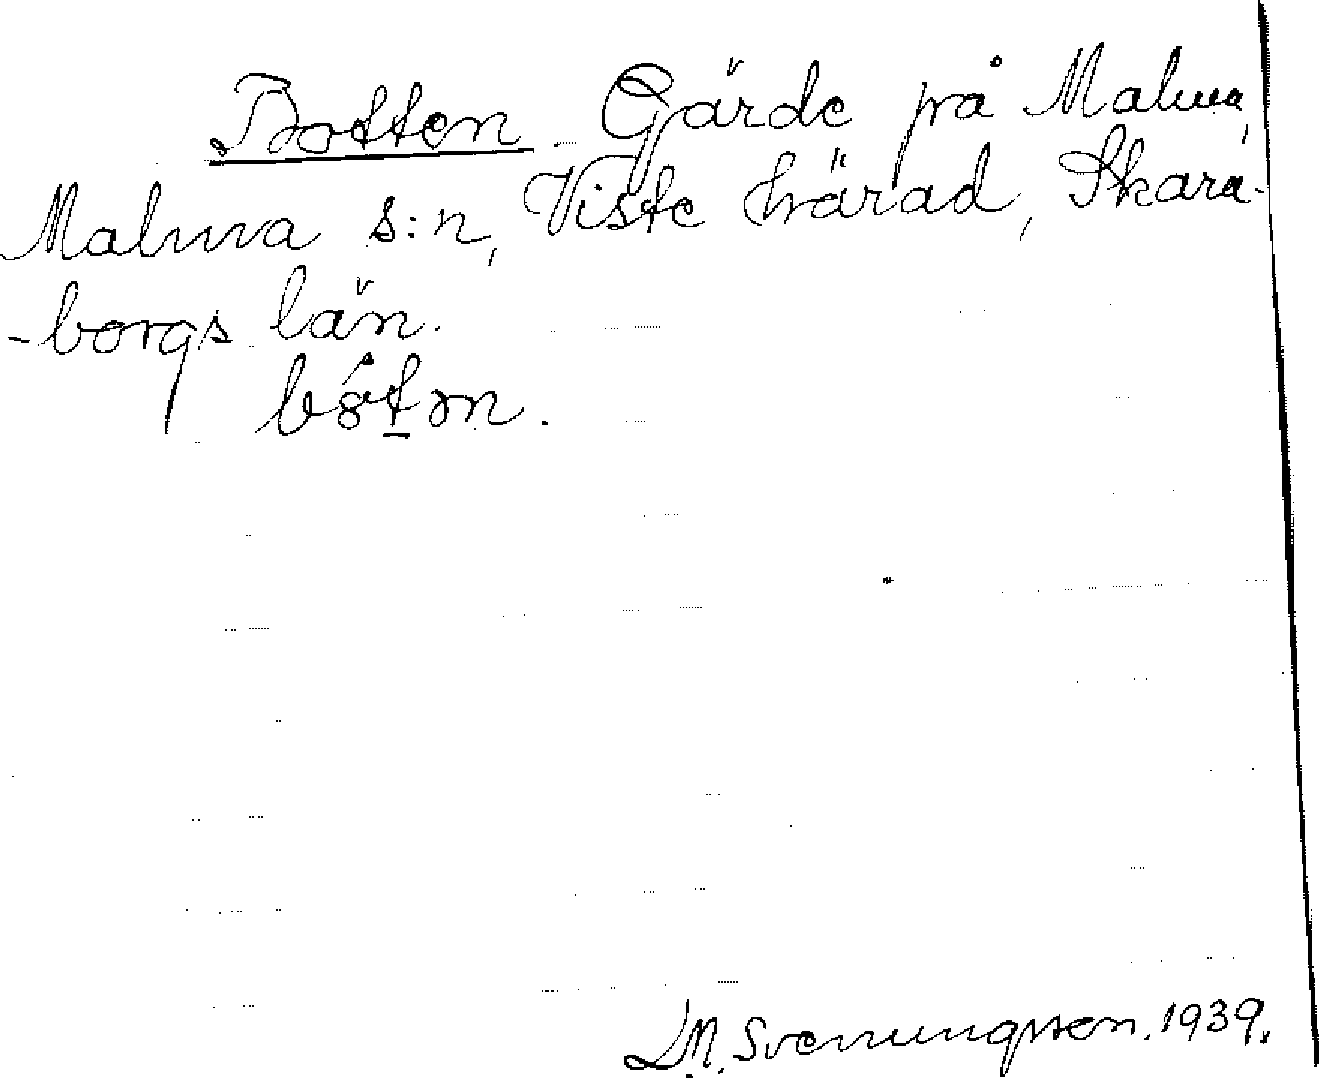 Botten. Gärde på Malma,
Malma s:n, Viste härad, Skara-
-borgs län.
M. Svenungsson. 1939.